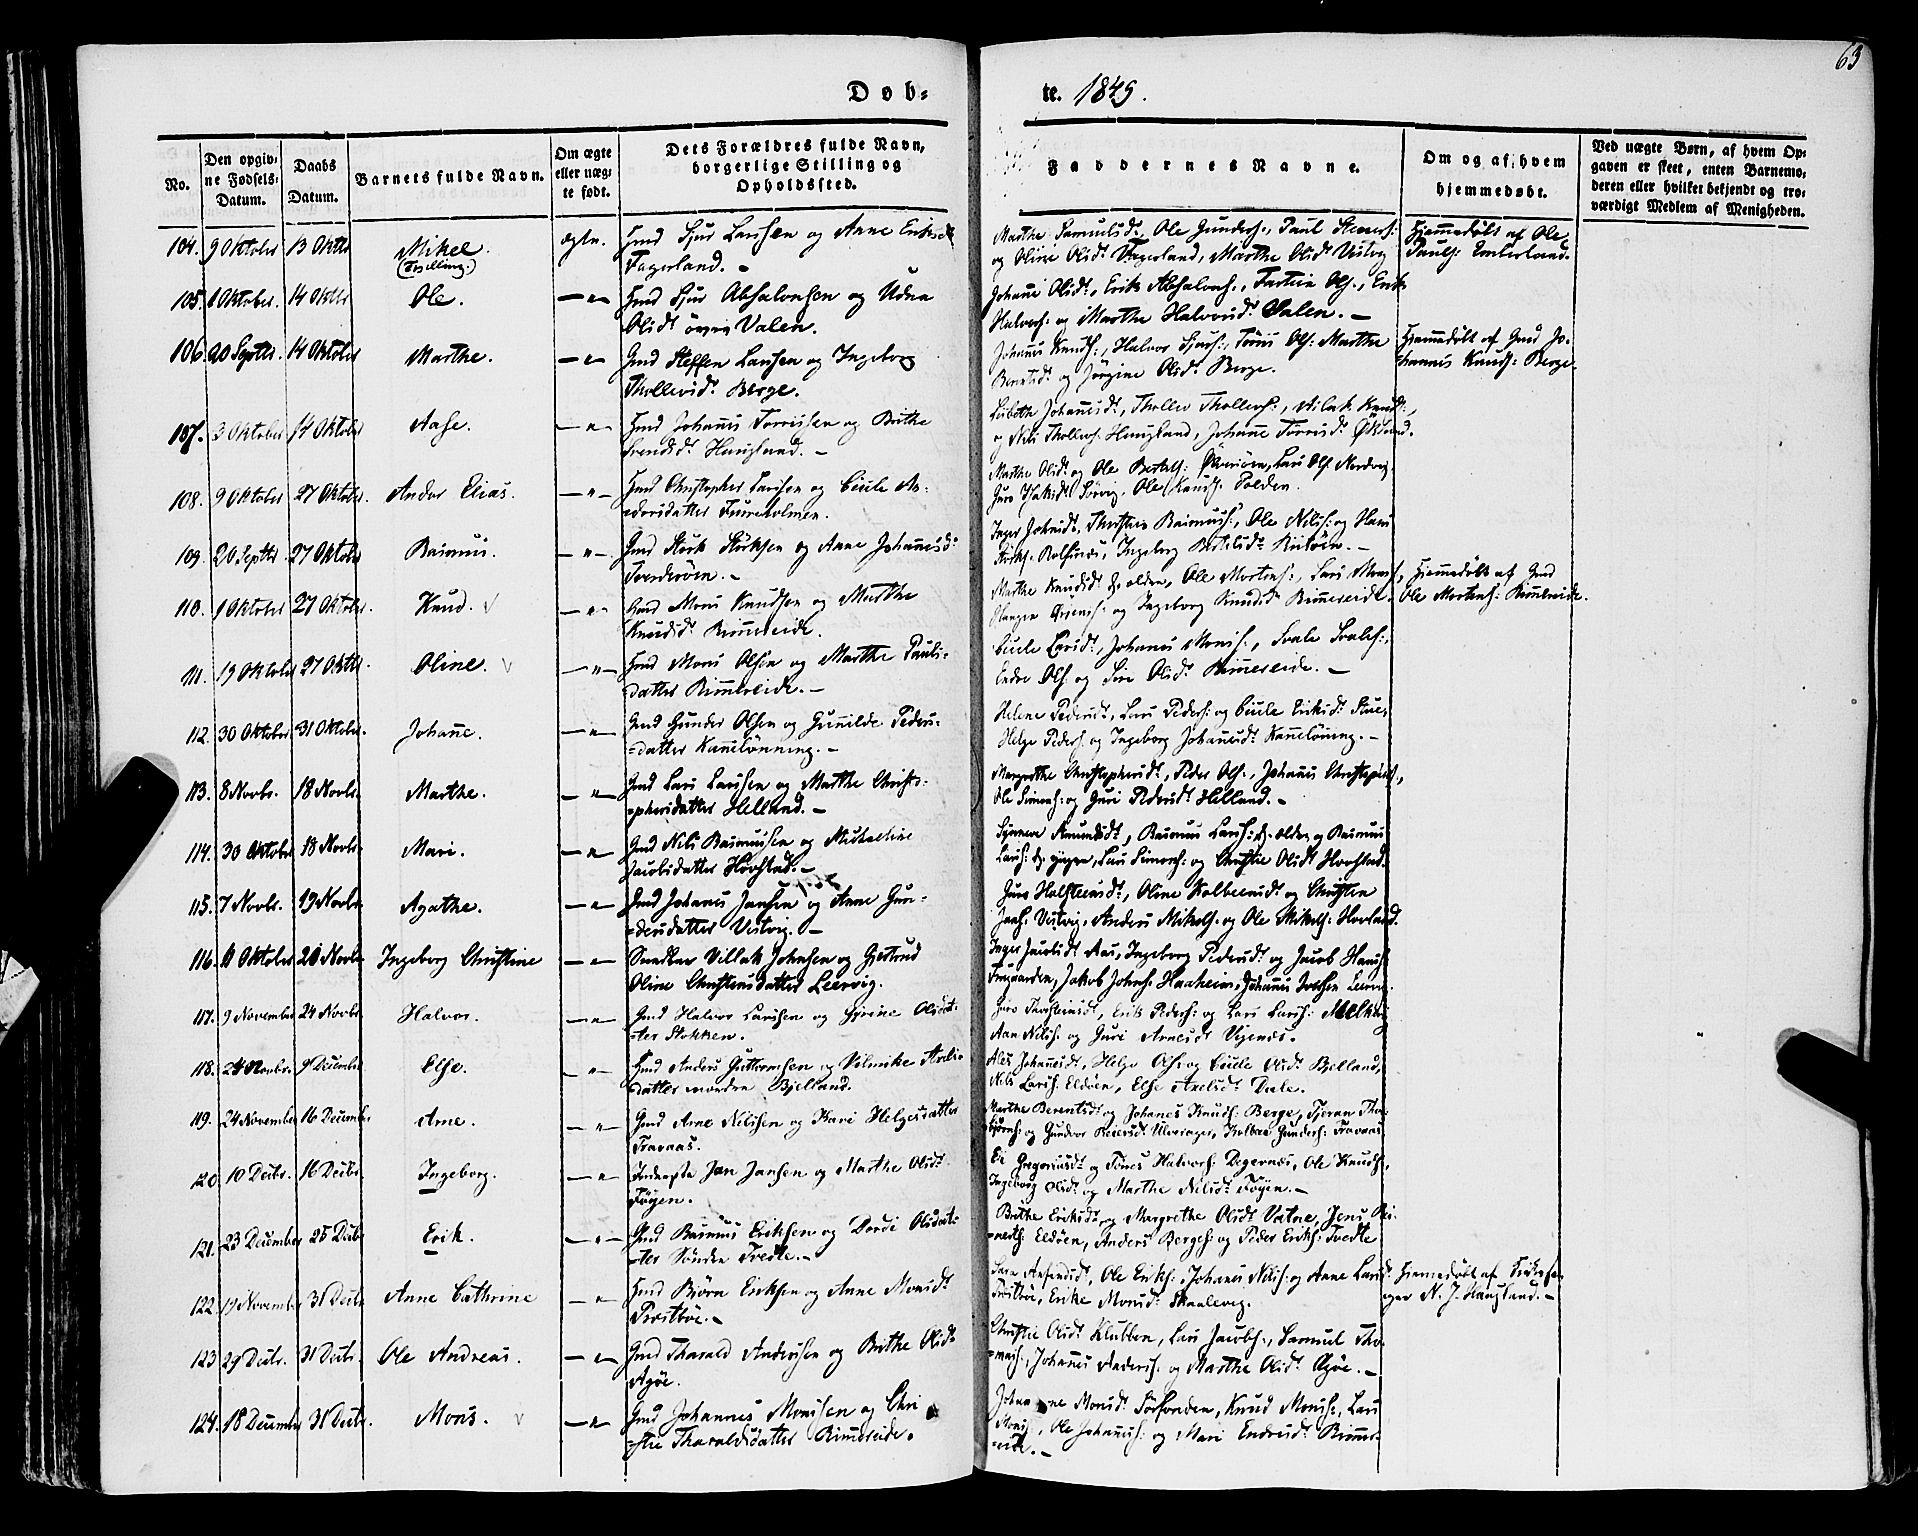 63
Døb-
te. 1849.
No.
Den opgiv-
ne Fødsels-
Datum.
Daabs
Datum.
Barnets fulde Navn.
Om ægte
eller uæg-
te født.
Dets Forældres fulde Navn,
borgerlige Stilling og
Opholdssted.
Faddernes Navne.
Om og af hvem
hjemmedøbt.
Ved uægte Børn, af hvem Op-
gaven er skeet, enten Barnemo-
deren eller hvilket bekjendt og tro-
værdigt Medlem af Menigheden.
104. 9 Oktober 13 Oktbr Mikel. ægte. Gmd Sjur Larssen og Anne Eriksd
(Tvilling.) Fagerland.
Marthe Samuelsdt, Ole Gunders:, Paul Steners:
og Oline Olsdt Fagerland, Marthe Olsdt Vestvig
Hjemmedøbt af Ole
Pauls: Emterland.
105. 1 Oktober. 14 Oktbr Ole. —"— Gmd Sjur Absalonsen og Udna
Olsdt øvre Valen.
Johanne Olsdt, Erik Absalons:, Olss:, Erik
Halvors: og Marthe Halvorsdt Valen.
106 20 Septbr. 14 Oktober Marthe. —"— Gmd Steffen Larssen og Ingeborg
Thollevsdt Berge.
Johannes Knuds:, Halvor Sjurs:, Tønnes Ols: Marthe
Berentsdt og Jørgine Olsdt Berge.
Hjemmedøbt af Gmd Jo-
hannes Knuds: Berge.
107. 3 Oktober 14 Oktober Aase. —"— Gmd Johannes Torrissen og Brithe
Svendsdt Haugland.
Lisbeth Johannesdt, Thollev Thollevs:, Aslak Knuds:,
og Nils Thollevs: Haugland, Johanne Torrisdt Økland.
108. 9 Oktober 27 Oktober. Andor Elias. —"— Gmd Christopher Larssen og Cicile An-
dorsdatter Fureholmen.
Marthe Olsdt og Ole Bertels: Økerøen, Lars Ols: Nordvig,
Guro Sørvig, Ole Knuds: Folden.
109. 20 Septbr 27 Oktober Rasmus. —"— Gmd Størk Størksen og Anne Johannesd:
Inger Johnsdt, Thorsten Rasmuss:, Ole Nilss: og Hans
Størks: Rolfsnes, Ingeborg Bertelsdt
110. 1 Oktober 27 Oktober. Knud. —"— Gmd Mons Knudsen og Marthe
Knudsdt Rimmereide.
Marthe Knudsdt d. ældre, Ole Mortens:, Lars Monss:,
og Ingeborg Knudsdt Rimmereide.
Hjemmedøbt af Gmd
Ole Mortens: Rimmereide.
111. 19 Oktober 27 Oktbr. Oline. —"— Gmd Mons Olsen og Marthe Pauls-
datter Rimmereide.
Cicile Larsdt, Johannes Monss:, Svale Svales:,
Endre Ols: og Siri Olsdt Rimmereide.
112. 30 Oktober 31 Oktober. Johanne. —"— Gmd Gunder Olsen og Gunnilde Peders-
datter Kanneløning.
Helene Pedersdt, Lars Peders: og Cicile Eriksdt Stue,
Helge Peders: og Ingeborg Johannesdt Kanneløning.
113. 8 Novbr. 18 Novbr. Marthe. —"— Gmd Lars Larssen og Marthe Christo-
phersdatter Helland.
Margrethe Christophersdt, Peder Ols:, Johannes Christophers:,
Ole Simons: og Guri Pedersdt Helland.
114. 30 Oktober 18 Novbr. Mari. —"— Gmd Nils Rasmussen og Michaeline
Jacobsdatter Hovstad.
Synneve Amundsdt, Rasmus Larss: d. ældre og Rasmus
Larss: d. yngre, Lars Simons: og Christie Olsdt Hovstad.
115. 7 Novbr. 19 Novbr. Agathe. —"— Gmd Johannes Jansen og Anne Gun-
dersdatter Vestvig.
Guro Halsteensdt, Oline Kolbeensdt og Christen
Vestvig, Anders Mikels: og Ole Mikels: Hovland.
116. 11 Oktober 20 Novbr Ingeborg Christine —"— Villak Johnsen og Gjertrud
Oline Christensdatter Leervig.
Inger Jacobsdt Aas, Ingeborg Pedersdt og Jacob Hans:
Jakob Johns: Haaheim, Johannes
117. 9 November 24 Novbr. Halvor. —"— Gmd Halvor Larssen og Gjerine Olsdat-
ter Stokken.
Guro Thorsteinsdt, Erik Peders: og Lars Larss:
Aan Nilss: og Guri Arnesdt Vigenæs.
118. 24 Novbr. 9 December Else. —"— Gmd Anders Guttormsen og Axels-
datter nordre Bjelland.
Johannesdt, Helge Ols: og Cicile Olsdt Bjelland,
Nils Larss: Eldøen, Else Axelsdt Dale.
119. 24 November 16 December Arne. —"— Gmd Arne Nilssen og Kari Helgesdatter
Fravaas.
Marthe Berentsdt og Johanes Knuds: Berge, Tjeran Thor-
bjørns: og Gundvor Reiersdt Ulverager, Kolben Gunders: Fravaas
120 10 Decbr. 16 Decbr. Ingeborg. —"— Inderste Jan Jansen og Marthe Olsdt
Føyen.
Gregoriusdt og Tønes Halvors: Degernæs, Ole Knuds:,
Ingeborg Olsdt og Marthe Nilsdt Føyen.
121. 23 December 25 Decbr Erik. —"— Gmd Rasmus Eriksen og Dordi Olsdat-
ter Søndre Tvedte.
Brithe Eriksdt og Margrethe Olsdt Vatne, Jens Rei-
nerts: Eldøen, Anders Berges: og Peder Eriks: Tvedte
122. 19 November 31 Decbr Anne Cathrine —"— Gmd Bjørn Eriksen og Anne Monsdt
Prestbøe.
Ole Eriks:, Johannes Nilss: og Anne Larsdt
Prestbøe, Erike Monsdt Skaalevig.
Hjemmedøbt af
N. J. Haugland.
123 29 Decbr. 31 Decbr. Ole Andreas. —"— Gmd Tharald Andersen og Brithe Olsdt
Agøe.
Christie Olsdt Klubben, Lars Jacobs:, Samuel Tho-
mas:, Johannes Anders: og Marthe Olsdt Agøe.
124. 18 December 31 Decbr. Mons. —"— Gmd Johannes Monssen og Chri
stie Tharaldsdatter Rimereide.
Monsdt Knud Monss:, Lars
Monss:, Ole Johannes: og Mari Endresdt Rimme-
reide.